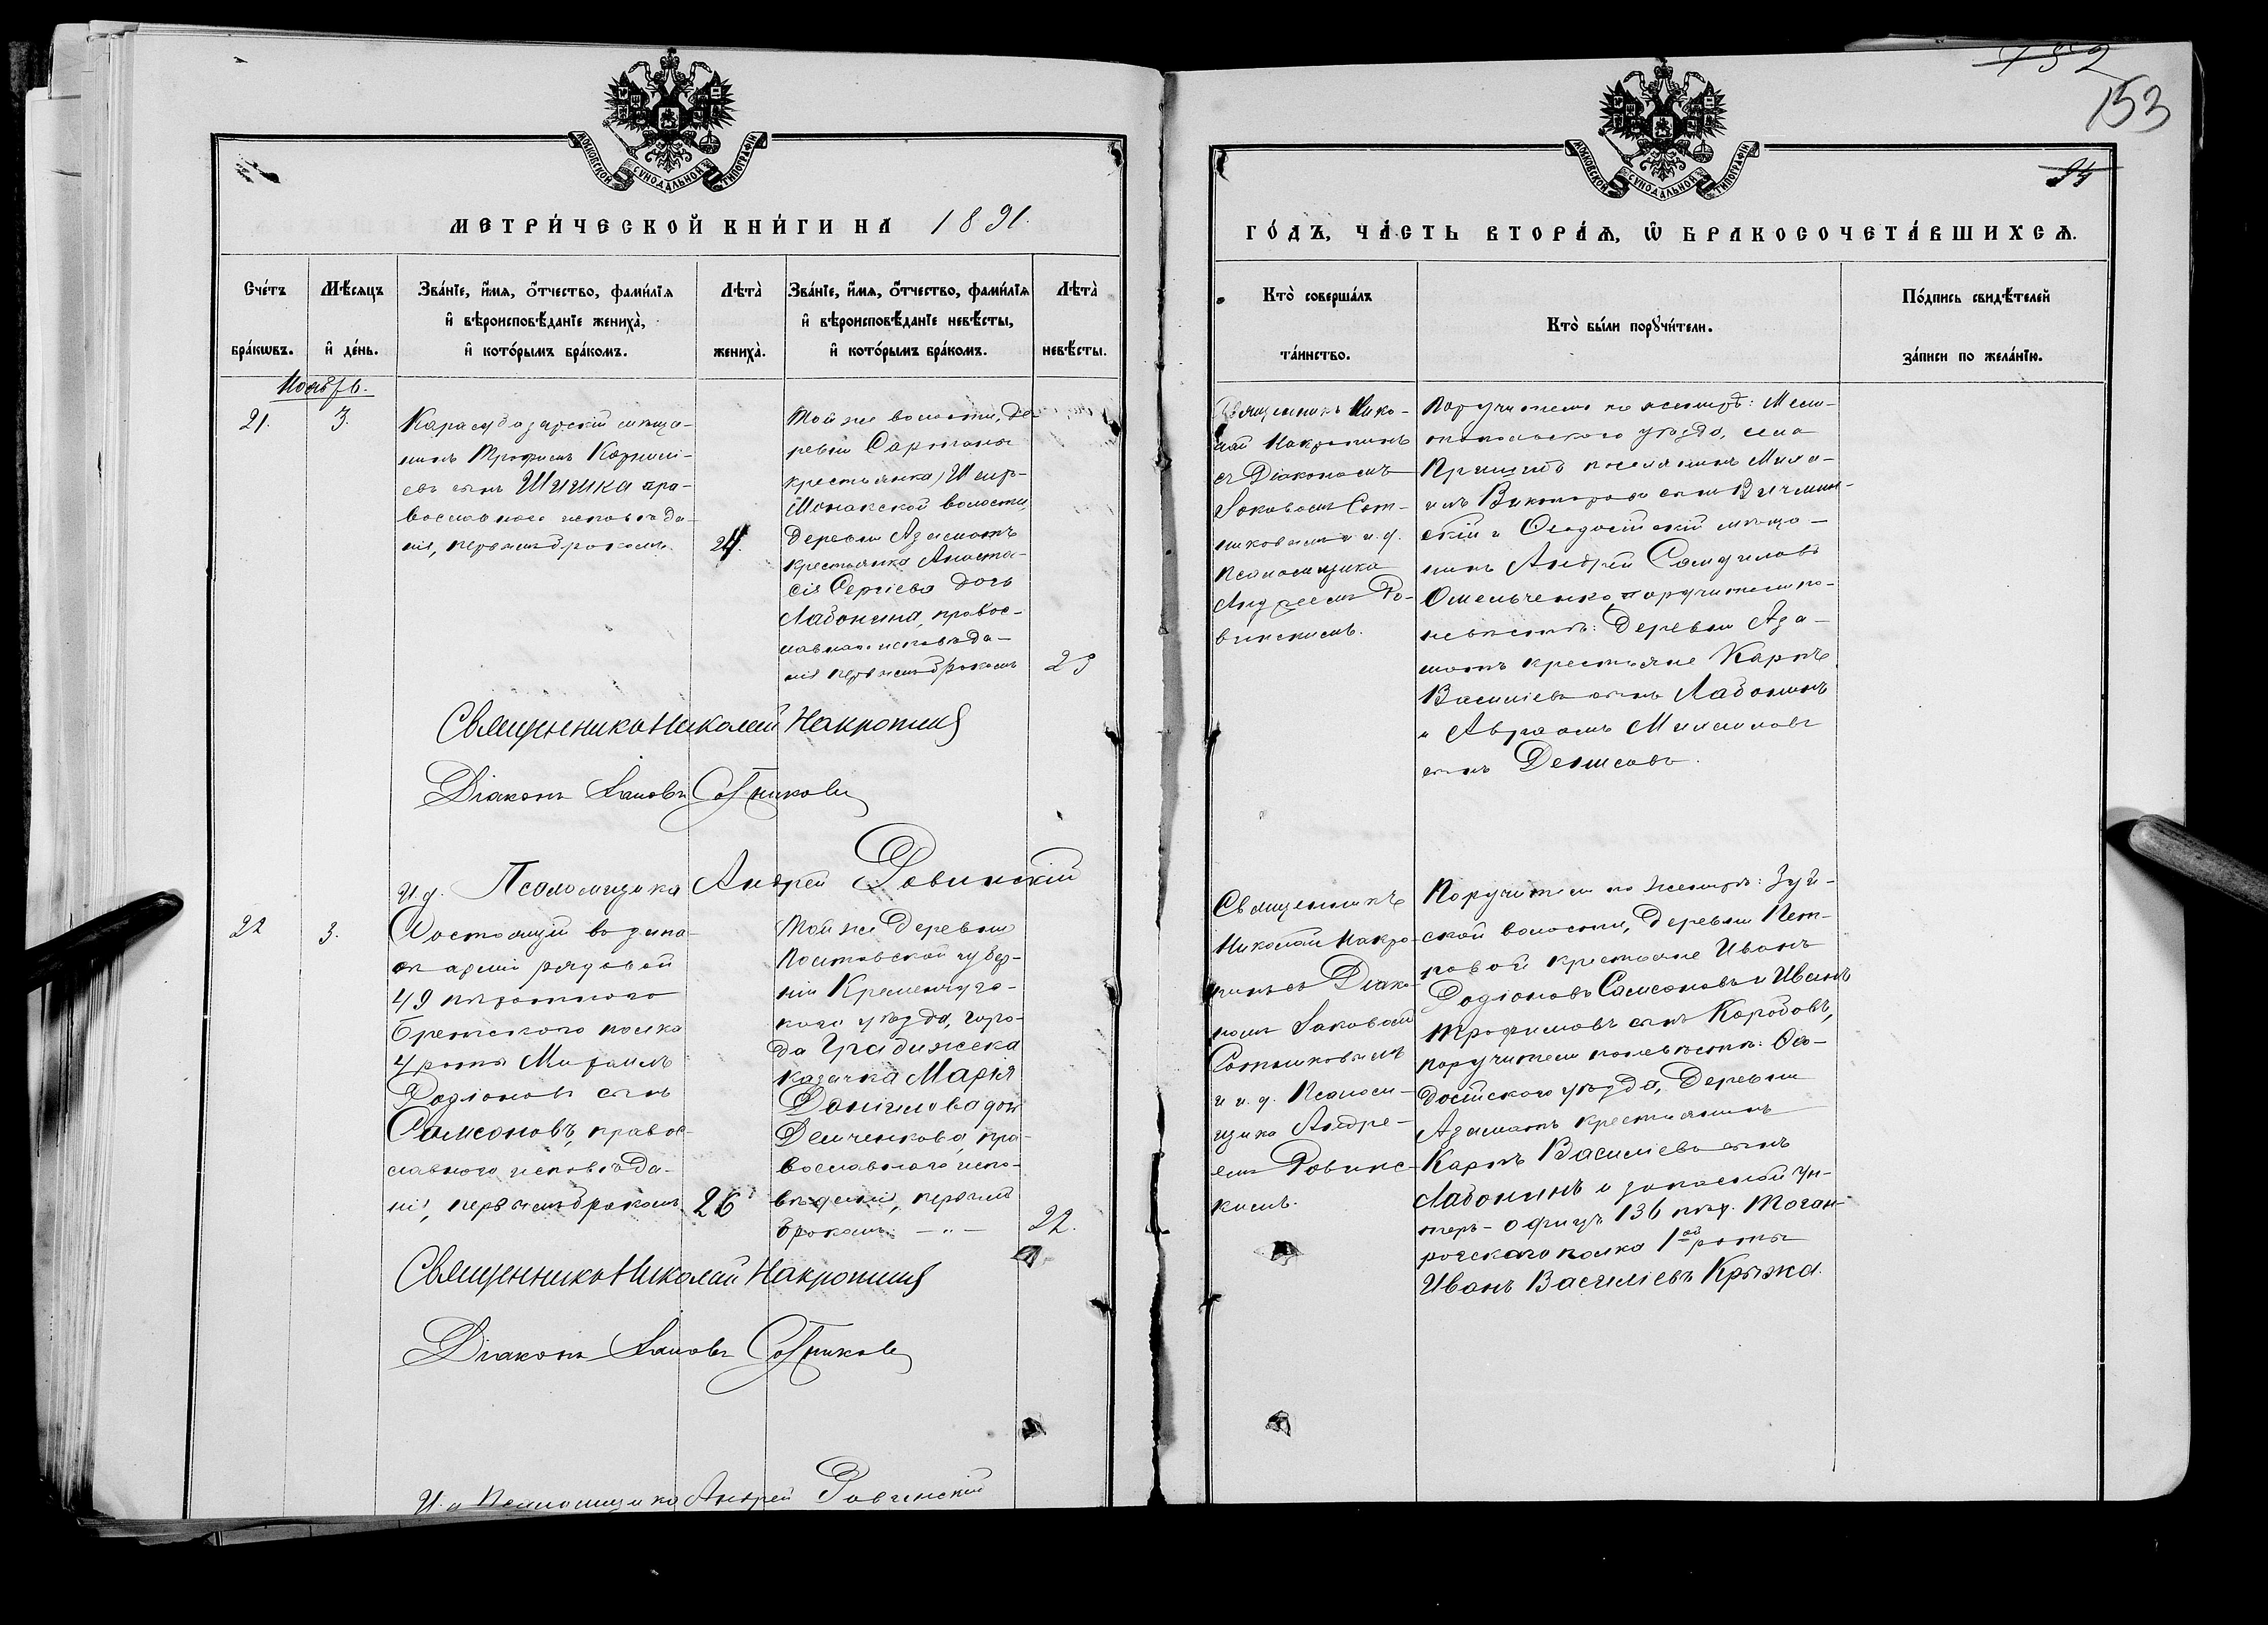 152
153
94
МОСКОВСКОЙ СѴНОДАЛЬНОЙ ТИПОГРАФІИ
МЕТРИ́ЧЕСКОЙ КНИ́ГИ НА 1891.
Сче́тъ бра́кѡвъ.
Мѣ́сяцъ и҆ де́нь.
Зва́нїе, и҆́мя, ѻ҆́тчество, фами́лїя
и҆ вѣроисповѣ́данїе жениха̀,
и҆ кото́рымъ бра́комъ.
Лѣта̀ жениха̀.
Зва́нїе, и҆́мя, ѻ҆́тчество, фами́лїя
и҆ вѣроисповѣ́данїе невѣ́сты,
и҆ кото́рымъ бра́комъ.
Лѣта̀ невѣ́сты.
Ноябрь.
21.
3.
Карасубазарскій мѣща-
нинъ Трофимъ Корнилі-
евъ сынъ Шишка пра-
вославнаго исповѣда-
нія, первымъ бракомъ
24.
Той же волости, де-
ревни Сартаны
крестьянка,
волости,
деревни Азаматъ
крестьянка Анаста-
сія Сергіева дочь
Лабонина, правос-
лавнаго исповѣда-
нія первымъ бракомъ
23
Священникъ Николай Накропинъ
Діаконъ Іаковъ Сотниковъ
И. д. Псаломщика Андрей Ровинскій
22
3.
Состоящій въ запа-
сѣ арміи рядовой
49 пѣхотнаго
Брестскаго полка
4 роты Михаилъ
Родіоновъ сынъ
Самсоновъ, правос-
лавнаго исповѣда-
нія, первымъ бракомъ
26
Той же деревни
Полтавской губер-
ніи Кременчугс-
каго уѣзда, горо-
да Градижска
казачка Марія
Даніилова доч
Демченкова, пра-
вославнаго испо-
вѣданія, первымъ
бракомъ. — „ —
22.
Священникъ Николай Накропинъ
Діаконъ Іаковъ Сотниковъ
И. д. Псаломщика Андрей Ровинскій
МОСКОВСКОЙ СѴНОДАЛЬНОЙ ТИПОГРАФІИ
ГО́ДЪ, ЧА́СТЬ ВТОРА́Ѧ, Ѡ҆ БРАКОСОЧЕТА́ВШИХСѦ.
Кто̀ соверша́лъ
та́инство.
Кто̀ бы́ли порꙋчи́тели.
По́дпись свидѣ́телей
за́писи по жела́нїю.
Священникъ Нико-
лай Накропинъ
съ Діакономъ
Іаковомъ Сот-
никовымъ и и. д.
Псаломщика
Андреемъ Ро-
винскимъ.
Поручители по женихѣ: Мели-
топольскаго уѣзда, села
поселянинъ Миха-
илъ Викторовъ сынъ
и Ѳеодосійскій мѣща-
нинъ Андрей Самуиловъ
Омельченко, поручители по
невѣстѣ: деревни Аза-
матъ крестьяне Карпъ
Василіевъ сынъ Лабонинъ
и Авраамъ
сынъ Денисовъ.
Священникъ
Николай Накро-
пинъ съ Діако-
номъ Іаковомъ
Сотниковымъ
и и. д. Псалом-
щика Андре-
емъ Ровинс-
кимъ.
Поручители по женихѣ: Зуй-
ской волости, деревни Пет-
ровой крестьяне Иванъ
Родіоновъ Самсоновъ и Иванъ
Трофимовъ сынъ Коробовъ,
поручители по невѣстѣ: Ѳео-
досійскаго уѣзда, деревни
Азаматъ крестьянинъ
Карпъ Василіевъ сынъ
Лабонинъ и запасной ун-
теръ-офицъ 136 пѣх. Таган-
рогскаго полка 1ой роты
Иванъ Василіевъ Крыжа.